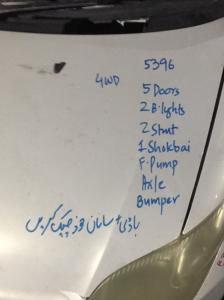 5396
4WD
5 Doors
2 B.lights
2 Strut
1 Shokbai
F. Pump
Axle
Bumper
باڈی + سامان فوز چیک کریں